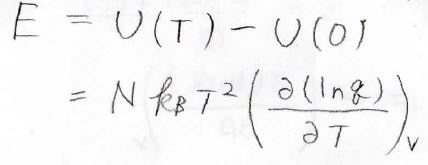 E = U(T) - U(0)
= N k_B T² ( ∂(ln q) / ∂T )_V